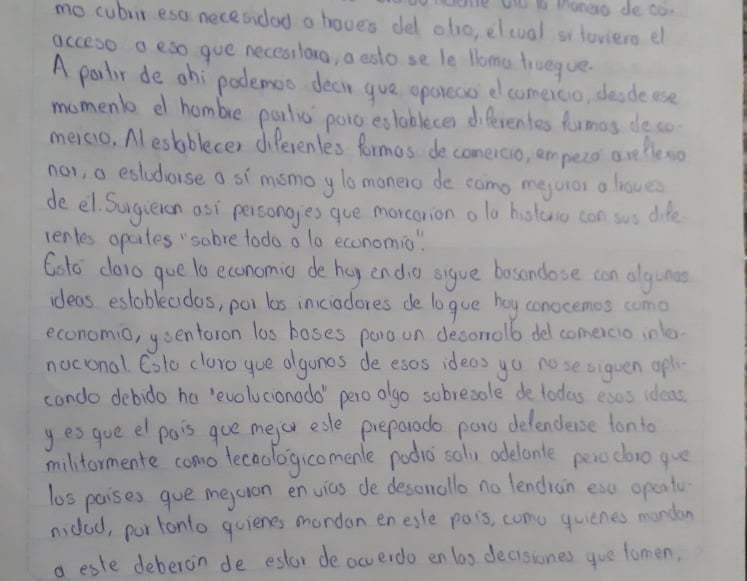 la manera de co-
mo cubrir esa necesidad a traves del otro, el cual si tuviera el
acceso a eso que necesitara, a esto se le llama trueque.
A partir de ahi podemos decir que aparecio el comercio, desde ese
momento el hombre partio para establecer diferentes formas de co-
mercio. Al establecer diferentes formas de comercio, empezo a reflexio
nar, a estudiarse a sí mismo y la manera de como mejorar a traves
de él. Surgieron asi personajes que marcarion a la historia con sus dife
rentes aportes "sobre todo a la economia".
Está claro que la economia de hoy en dia sigue basandose con algunas
ideas establecidas, por los iniciadores de lo que hoy conocemos como
economia, y sentaron las bases para un desarrollo del comercio inter-
nacional. Esta claro que algunas de esas ideas ya no se siguen apli-
cando debido ha "evolucionado" pero algo sobresale de todas esas ideas,
y es que el pais que mejor este preparado para defenderse tanto
militarmente como tecnologicamente podrá salir adelante pero claro que
los paises que mejoran en vias de desarrollo no tendran esa oportu-
nidad, por tanto quienes mandan en este pais, como quienes mandan
a este deberan de estar de acuerdo en las decisiones que tomen,